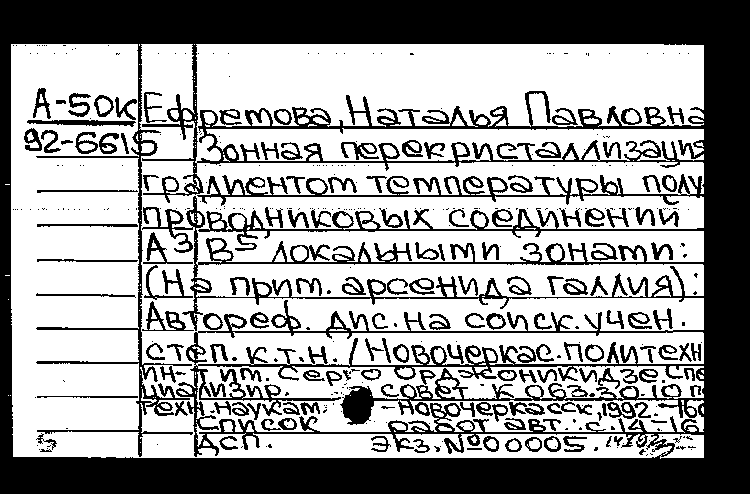 А-50К Ефремова, Наталья Павловна
92-6615 Зонная перекристаллизация
градиентом температуры полу-
проводниковых соединений
A³B⁵ локальными зонами:
(На прим. арсенида галлия):
Автореф. дис. на соиск. учен.
степ. к.т.н. / Новочеркас. политехн
ин-т им. Серго Орджоникидзе. Спе
циализир. совет К 063.30.10 по
техн. наукам. - Новочеркасск, 1992. - 16с
Список работ авт.: с. 14-16.
5 ДСП. Экз. № 00005.